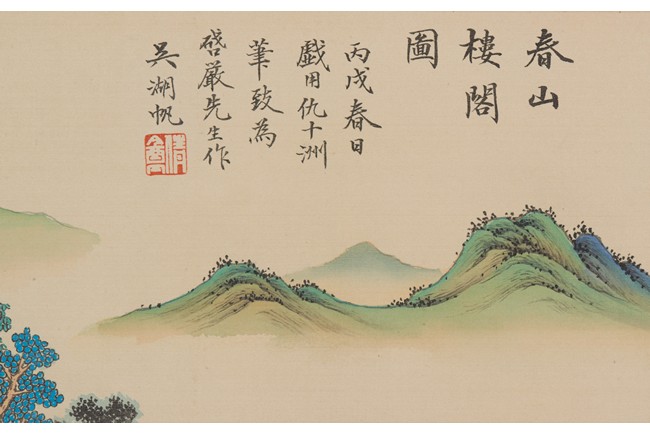 春山
樓閣
圖
丙戌春日
戲用仇十洲
筆致為
啓嚴先生作
吳湖帆